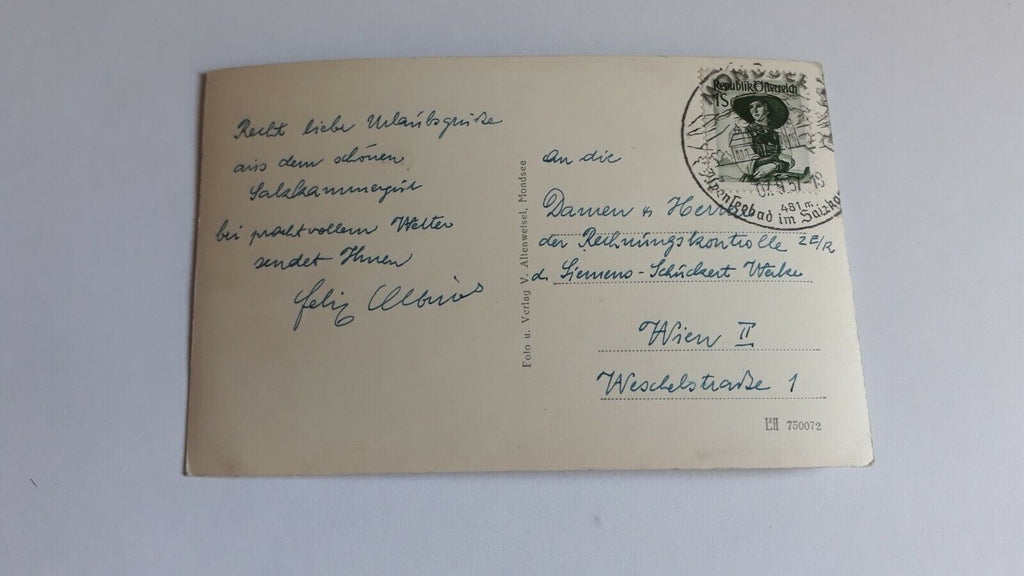 Recht liebe Urlaubsgrüße
aus dem schönen
Salzkammergut
bei prachtvollem Wetter
sendet Ihnen
Felix
Foto u. Verlag V. Altenweisel, Mondsee
MONDSEE
Republik Österreich
1S
07.9.57-18
481 m.
Alpenseebad im Salzka
An die
Damen u Herrn
der Rechnungskontrolle ZE/R
d. Siemens-Schuckert Werke
Wien II
Weschelstraße 1
750072